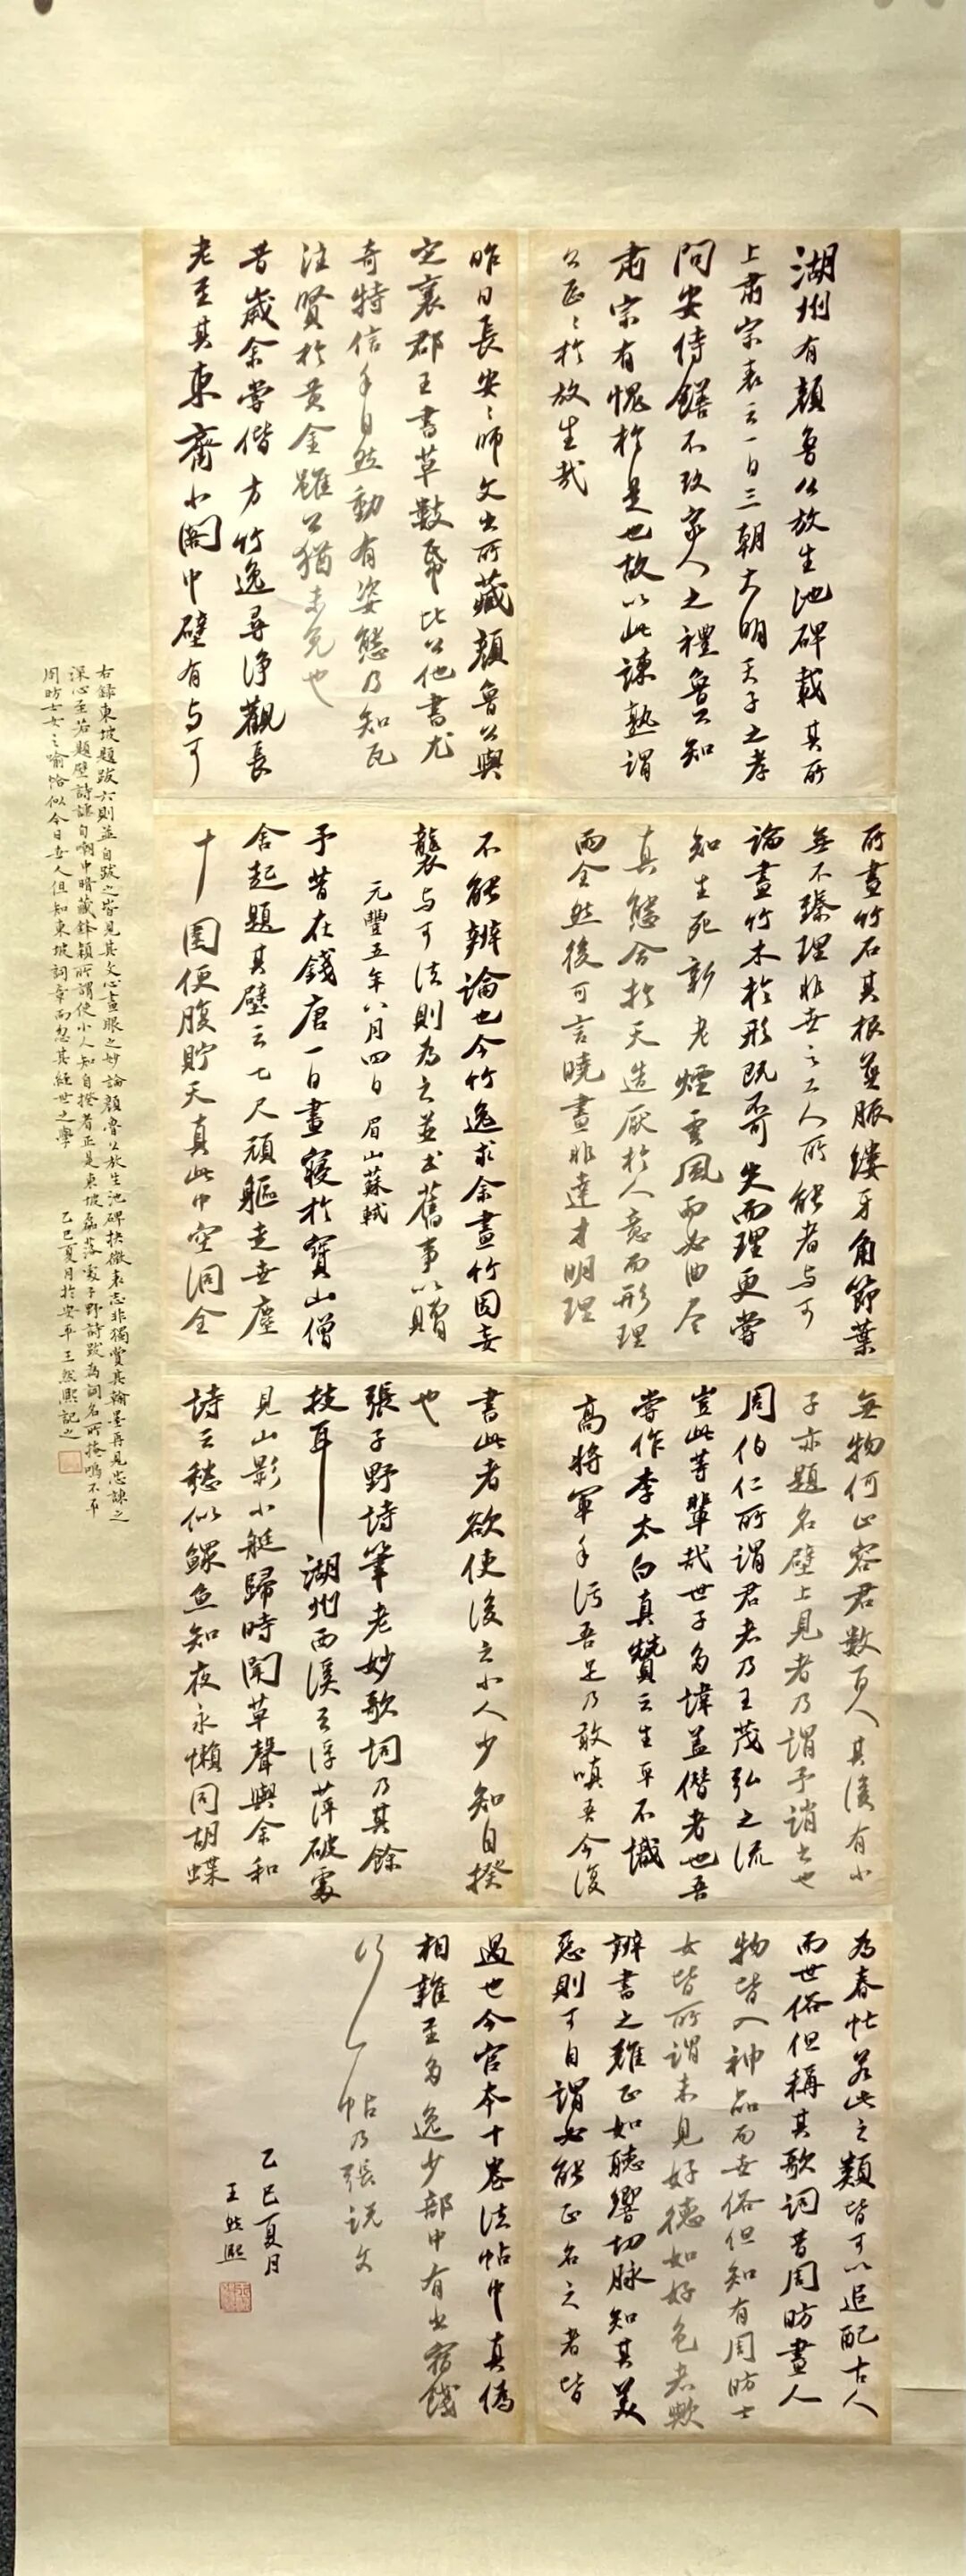 湖州有顏魯公放生池碑載其所
上肅宗表云一日三朝大明天子之孝
問安侍饍不改家人之禮魯公知
肅宗有愧於是也故以此諫孰謂
公區〻於放生哉
昨日長安〻師文出所藏顏魯公與
定襄郡王書草數紙比公他書尤
奇特信手自然動有姿態乃知瓦
注賢於黃金雖公猶未免也
昔歲余嘗偕方竹逸尋淨觀長
老至其東齋小閣中壁有与可
所畫竹石其根莖脈縷牙角節葉
無不臻理非世之工人所能者与可
論畫竹木於形既不可失而理更當
知生死新老煙雲風雨必曲尽
真態合於天造厭於人意而形理
兩全然後可言曉畫非達才明理
不能辨論也今竹逸求余畫竹因妄
襲与可法則為之並書舊事以贈
元豐五年八月四日 眉山蘇軾
予昔在錢唐一日晝寢於寶山僧
舍起題其壁云七尺頑軀走世塵
十圍便腹貯天真此中空洞全
無物何止容君數百人其後有小
子亦題名壁上見者乃謂予誚之也
周伯仁所謂君者乃王茂弘之流
豈此等輩哉世子多諱蓋僭者也吾
嘗作李太白真贊云生平不識
高將軍手污吾足乃敢嗔吾今復
書此者欲使後之小人少知自揆
也
張子野詩筆老妙歌詞乃其餘
技耳湖州西溪云浮萍破處
見山影小艇歸時聞草聲與余和
詩云愁似鰥魚知夜永懶同胡蝶
為春忙若此之類皆可以追配古人
而世俗但稱其歌詞昔周昉畫人
物皆入神品而世俗但知有周昉士
女皆所謂未見好德如好色者歟
辨書之難正如聽響切脈知其美
惡則可自謂必能正名之者皆
過也今官本十卷法帖中真偽
相雜至多逸少部中有出宿餞
行一帖乃張說文
乙巳夏月
王然熙
右錄東坡題跋六則並自跋之皆見其文心畫眼之妙論顏魯公放生池碑抉微表志非獨賞其翰墨再見忠諫之
深心至若題壁詩謔自嘲中暗藏鋒穎所謂使小人知自揆者正是東坡磊落處子野詩跋為詞名所掩鳴不平
周昉士女之喻恰似今日世人但知東坡詞章而忽其經世之學 乙巳夏月於安平 王然熙記之